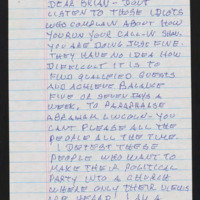 DEAR BRIAN - DON'T
LISTEN TO THOSE IDIOTS
WHO COMPLAIN ABOUT HOW
YOU RUN YOUR CALL-IN SHOW.
YOU ARE DOING JUST FINE.
THEY HAVE NO IDEA HOW
DIFFICULT IT IS TO
FIND QUALIFIED GUESTS
AND ACHIEVE BALANCE
FIVE OR SEVEN DAYS A
WEEK. TO PARAPHRASE
ABRAHAM LINCOLN - YOU
CANT PLEASE ALL THE
PEOPLE ALL THE TIME.
I DETEST THESE
PEOPLE WHO WANT TO
MAKE THEIR POLITICAL
PARTY INTO A CHURCH
WHERE ONLY THEIR VIEWS
HEARD I AM A